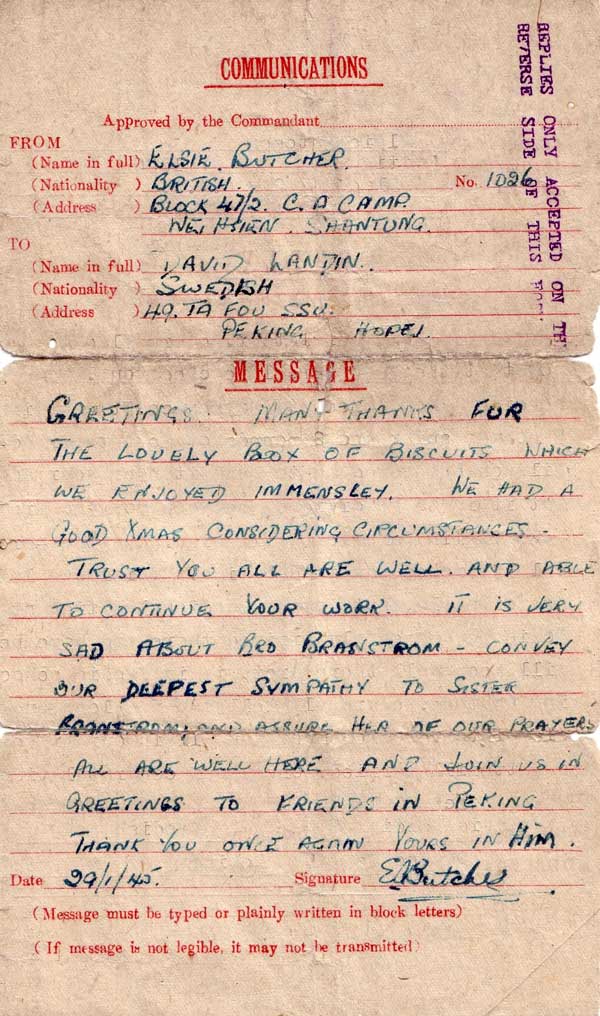 COMMUNICATIONS
Approved by the Commandant
FROM
(Name in full) ELSIE. BUTCHER.
(Nationality ) BRITISH. No. 1026
(Address ) BLOCK 47/2. C. A CAMP.
WEI HSIEN. SHANTUNG.
TO
(Name in full) DAVID LANDIN.
(Nationality ) SWEDISH
(Address ) 49. TA FOU SSU.
PEKING HOPEI.
REPLIES ONLY ACCEPTED ON TH
REVERSE SIDE OF THIS FORM.
MESSAGE
GREETINGS. MANY THANKS FOR
THE LOVELY BOX OF BISCUITS WHICH
WE ENJOYED IMMENSLEY. WE HAD A
GOOD XMAS CONSIDERING CIRCUMSTANCES -
TRUST YOU ALL ARE WELL. AND ABLE
TO CONTINUE YOUR WORK. IT IS VERY
SAD ABOUT BRO BRANSTROM - CONVEY
OUR DEEPEST SYMPATHY TO SISTER
BRANSTROM, AND ASSURE HER OF OUR PRAYERS
ALL ARE WELL HERE AND JOIN US IN
GREETINGS TO FRIENDS IN PEKING
THANK YOU ONCE AGAIN YOURS IN HIM.
Date 29/1/45. Signature E. Butcher
(Message must be typed or plainly written in block letters)
(If message is not legible, it may not be transmitted)